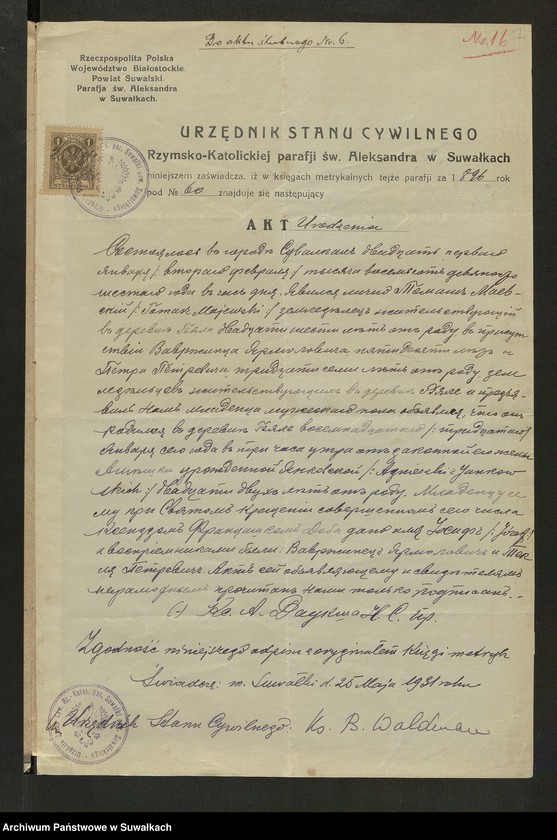 Do aktu ślubnego Nr. 6.
No 16
Rzeczpospolita Polska
Województwo Białostockie.
Powiat Suwalski.
Parafja św. Aleksandra
w Suwałkach.
URZĘDNIK STANU CYWILNEGO
Rzymsko-Katolickiej parafji św. Aleksandra w Suwałkach
niniejszem zaświadcza, iż w księgach metrykalnych tejże parafji za 1896 rok
pod № 60 znajduje się następujący
AKT Urodzenia
Состоялось в городе Сувалках двадцать первого
января /: второго февраля :/ тысяча восемьсот девяносто
шестого года в час дня. Явился лично Томаш Маев-
ский /: Tomasz Majewski :/ земледелец жительствующий
в деревне двадцати шести лет от роду в присут
ствии Вавржинца Ярмоловича пятидесяти и
Петра Петревича тридцати семи лет от роду, земле
дельцев жительствующих в деревне и предъя-
вил нам младенца мужеского пола объявляя, что он
родился в деревне восемнадцатого /: тридцатого /
января сего года в три часа утра от законной его жены
Агнешки урожденной Янковской /: Agnieszki z Jankow
skich :/ двадцати двух лет от роду. Младенцу се
му при Святом Крещении совершенном сего числа
ксендзом Францишком дано имя Иосиф /: Józef /
а восприемниками были: Вавржинец Ярмолович и Тек
ля Петревич. Акт сей объявляющему и свидетелям
неграмотным прочитан нами только подписан. -
(-) Кс. А. Даукша Н. С. пр.
Zgodność niniejszego odpisu z oryginałem księgi metryk
świadczę: m. Suwałki d. 25 Maja 1931 roku
Urzędnik Stanu Cywilnego. Ks. B. Waldman
Archiwum Państwowe w Suwałkach